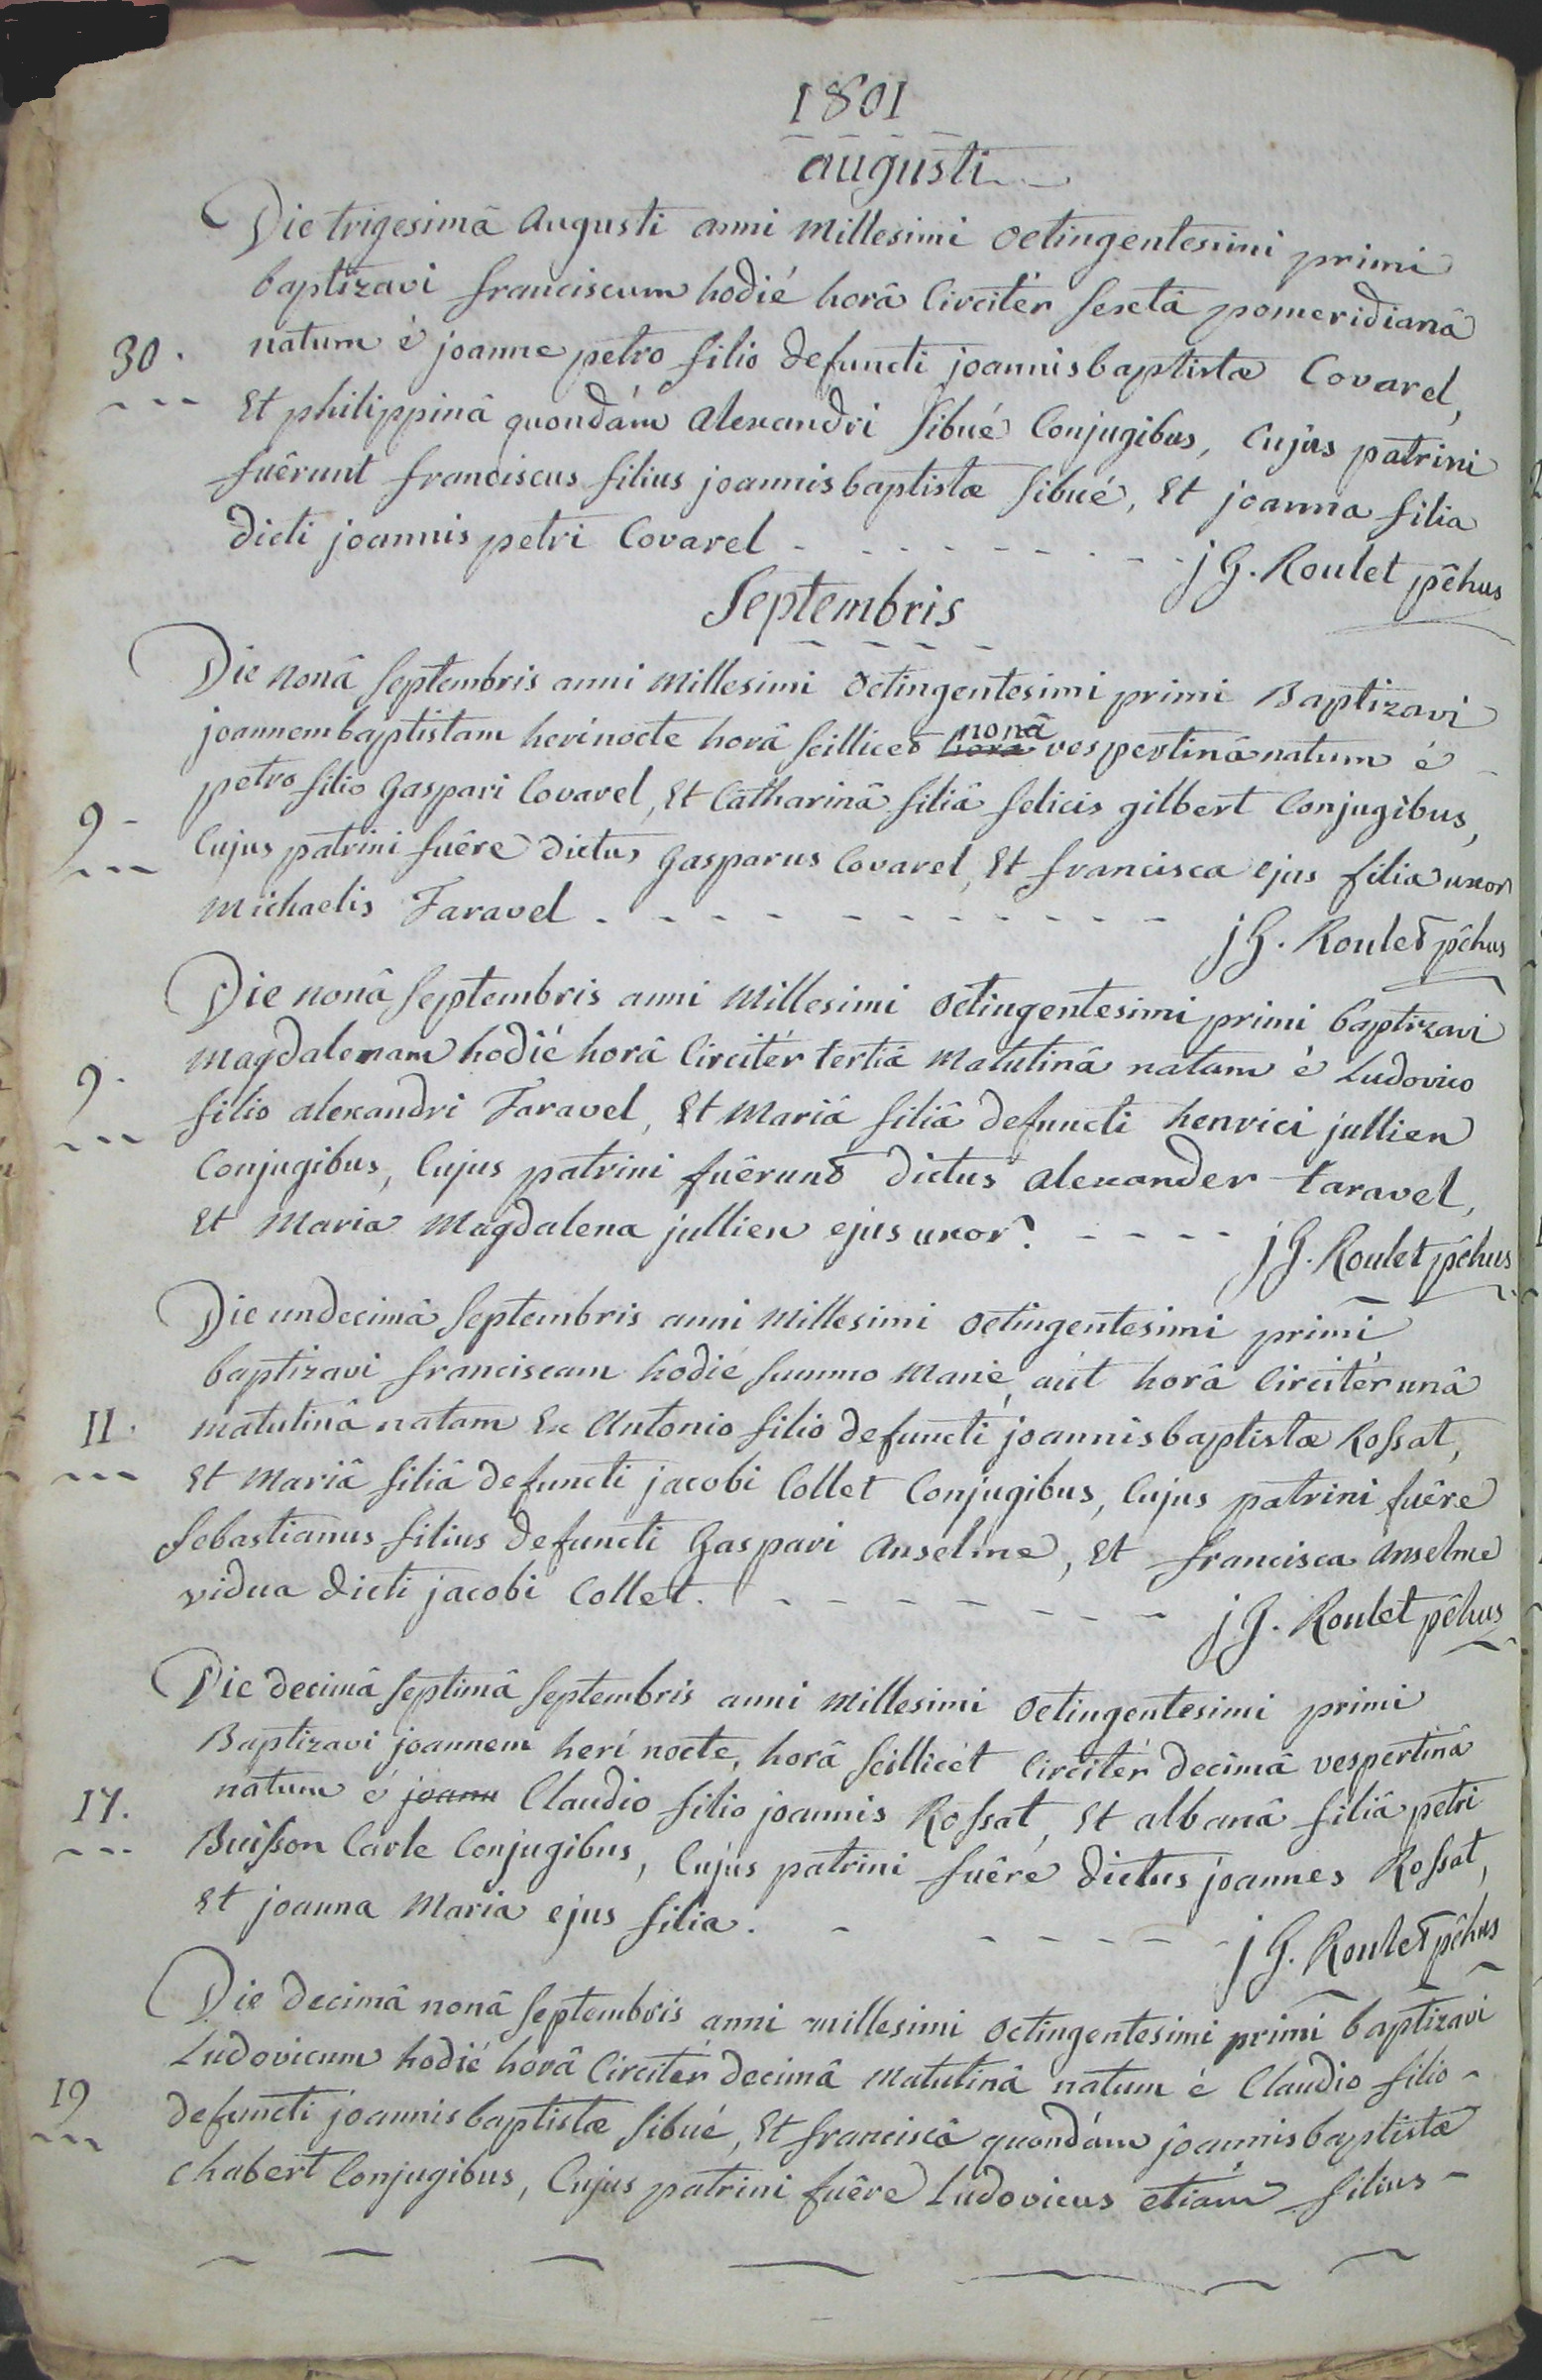 1801
augusti
Die trigesimâ Augusti anni Millesimi octingentesimi primi
baptizavi franciscum hodié horâ Circitèr sextâ pomeridianâ
30. natum é joanne petro filio defuncti joannisbaptistæ Covarel,
Et philippinâ quondám alexandri Sibué Conjugibus, Cujus patrini
fuêrunt franciscus filius joannisbaptistæ Sibué, Et joanna filia
dicti joannis petri Covarel - - - - - - - - - j G. Roulet pêhus
Septembris
Die nonâ Septembris anni Millesimi Octingentesimi primi Baptizavi
joannembaptistam heri nocte horâ scillicet hora nonâ vespertinâ natum é
petro filio Gaspari Covarel, Et Catharinâ filiâ felicis gilbert Conjugibus,
9 - Cujus patrini fuêre dictus Gasparus Covarel, Et francisca ejus filia uxor
Michaelis Taravel - - - - - - - - - - - j G. Roulet pêhus
Die nonâ Septembris anni Millesimi Octingentesimi primi baptizavi
Magdalenam hodié horâ Circitér tertiâ Matutinâ natam é Ludovico
9. filio alexandri Taravel, Et Mariâ filiâ defuncti henrici jullien
Conjugibus, Cujus patrini fuêrunt dictus alexander taravel,
Et Maria Magdalena jullien ejus uxor. - - - - j G. Roulet pêhus
Die undecimâ Septembris anni Millesimi Octingentesimi primi
baptizavi franciscam hodié summo Mane, aút horâ Circitér unâ
11. matutinâ natam Ex Antonio filio defuncti joannisbaptistæ Rossat,
Et Mariâ filiâ defuncti jacobi Collet Conjugibus, Cujus patrini fuêre
Sebastianus filius defuncti Gaspari Anselme, Et francisca Anselme
vidua dicti jacobi Collet. - - - - - - - - j G. Roulet pêhus
Die decimâ septimâ Septembris anni Millesimi Octingentesimi primi
Baptizavi joannem herí nocte, horâ scillicét Circitér decimâ vespertinâ
17. natum é joann Claudio filio joannis Rossat, Et albanâ filiâ petri
Buisson Carle Conjugibus, Cujus patrini fuêre dictus joannes Rossat,
Et joanna Maria ejus filia. - - - - - - j G. Roulet pêhus
Die decimâ nonâ Septembris anni millesimi Octingentesimi primi baptizavi
Ludovicum hodié horâ Circitér decimâ Matutinâ natum é Claudio filio -
19 defuncti joannisbaptistæ Sibué, Et franciscâ quondám joannisbaptistæ
Chabert Conjugibus, Cujus patrini fuêre Ludovicus etiám filius -